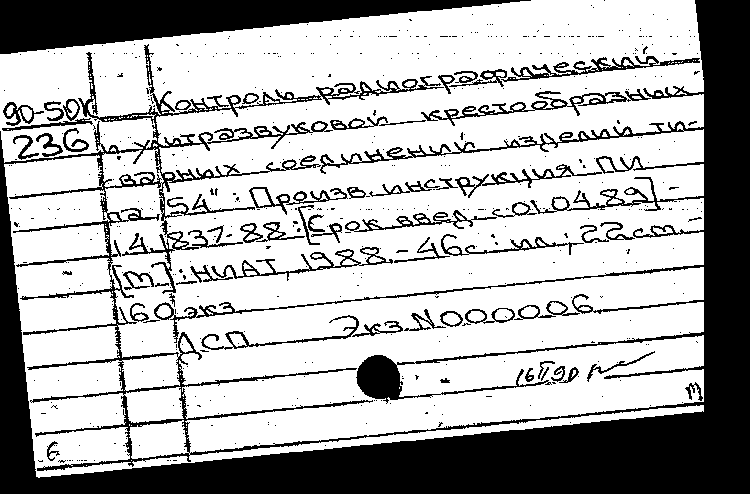 90-50к Контроль радиографический
236 и ультразвуковой крестообразных
сварных соединений изделий ти-
па „54“: Произв. инструкция: ПИ
1.4.1837-88: [Срок введ. с 01.04.89] -
[М]: НИАТ, 1988. - 46с.: ил.; 22см. -
160 экз.
ДСП Экз. N000006.
16 II 90
6 М